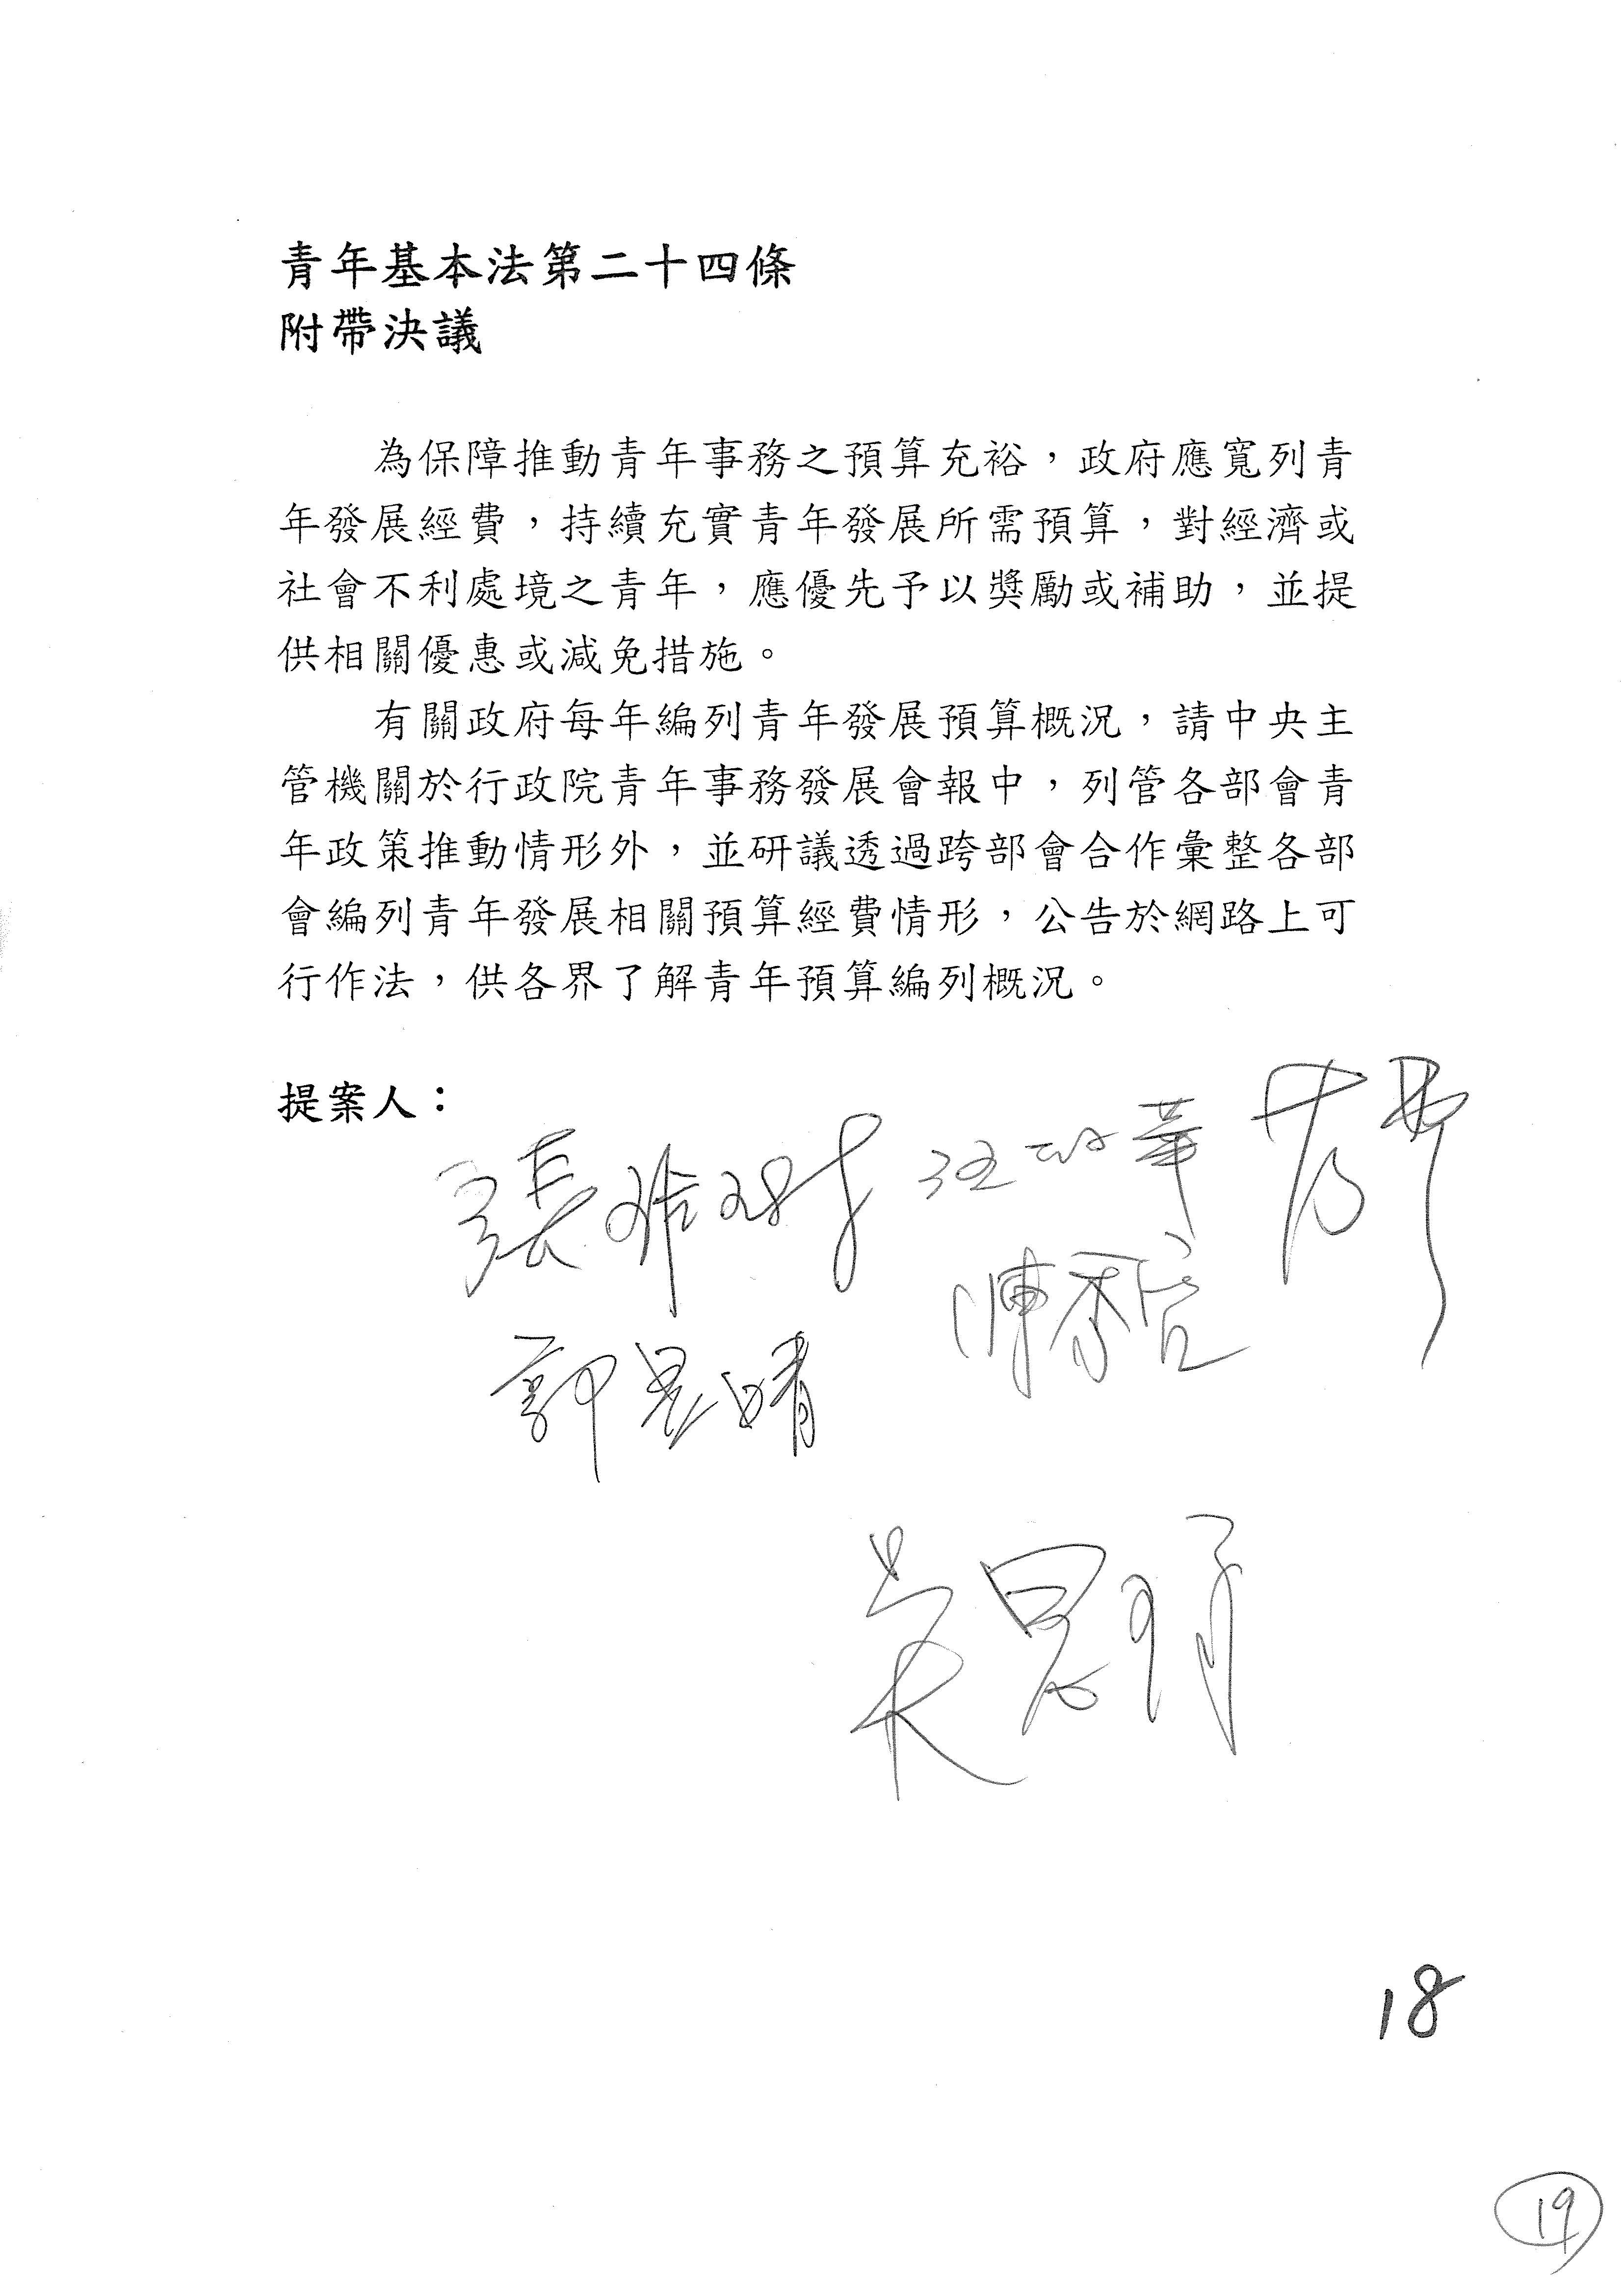 青年基本法第二十四條
附帶決議
為保障推動青年事務之預算充裕，政府應寬列青
年發展經費，持續充實青年發展所需預算，對經濟或
社會不利處境之青年，應優先予以獎勵或補助，並提
供相關優惠或減免措施。
有關政府每年編列青年發展預算概況，請中央主
管機關於行政院青年事務發展會報中，列管各部會青
年政策推動情形外，並研議透過跨部會合作彙整各部
會編列青年發展相關預算經費情形，公告於網路上可
行作法，供各界了解青年預算編列概況。
提案人：
張雅琳
陳秀寳
郭昱晴
吳思瑤
18
19